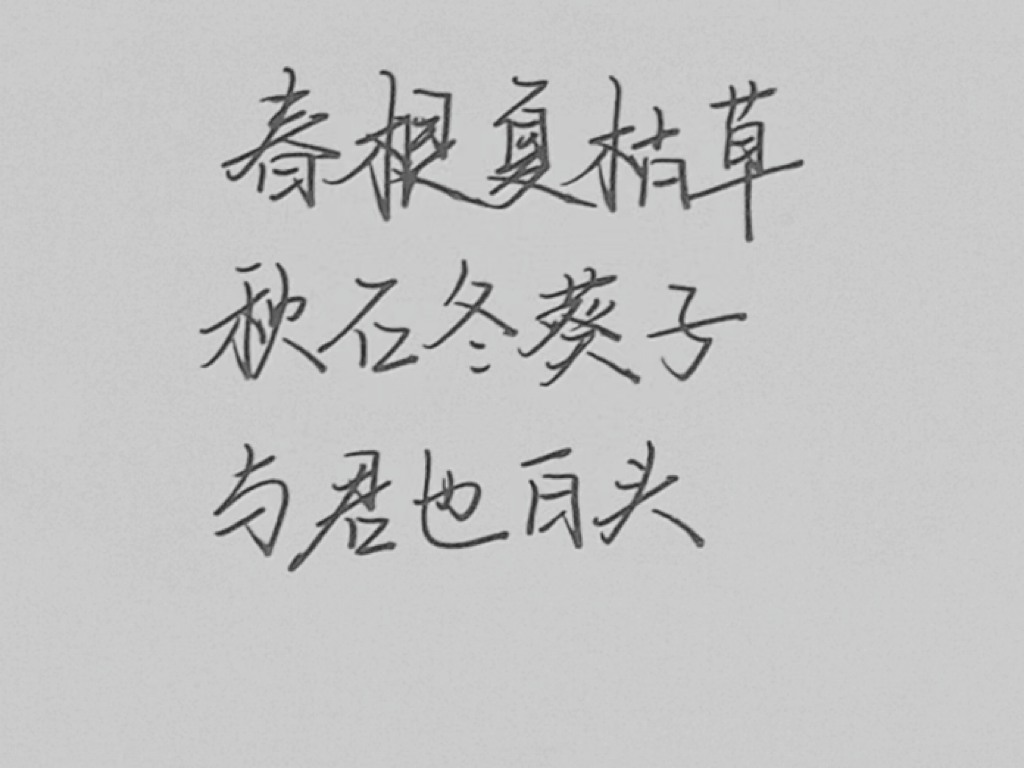 春根夏枯草
秋石冬葵子
与君也百头